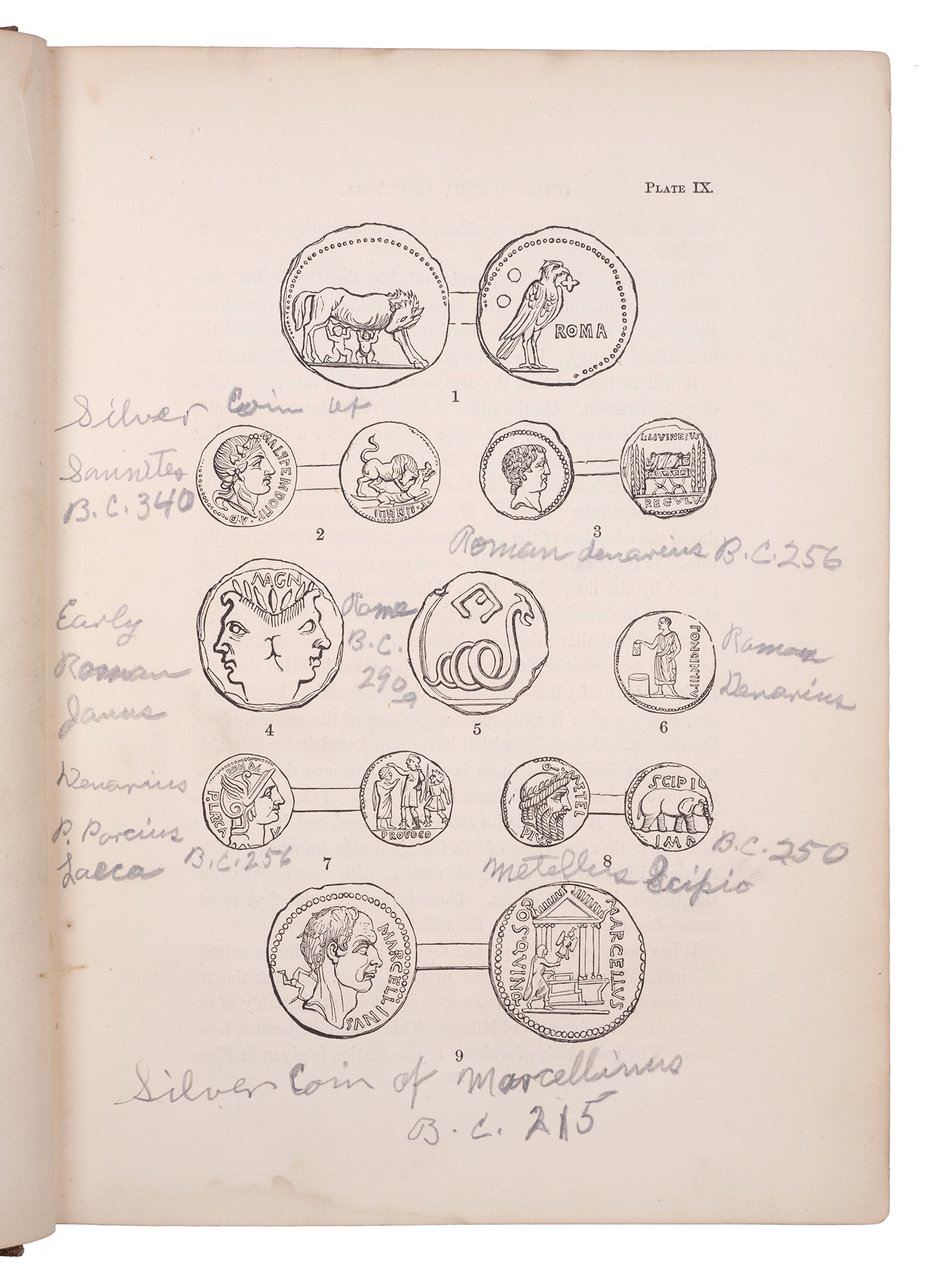 PLATE IX.
ROMA
1
Silver Coin of
Samnites
B.C. 340
2
L.LIVINEIVS
REGVLVS
3
Roman denarius B.C. 256
MAGN
Early
Roman
Janus
Rome
B.C.
290
4
5
LONGIN III V
6
Roman
Denarius
Denarius
P. Porcius
Laeca B.C. 256
P.LAECA
ROMA
PROVOCO
7
METEL
PIVS
SCIPIO
IMP
8
B.C. 250
Metellus Scipio
MARCELLINVS
MARCELLVS
COS.QVINC
9
Silver Coin of Marcellinus
B.C. 215